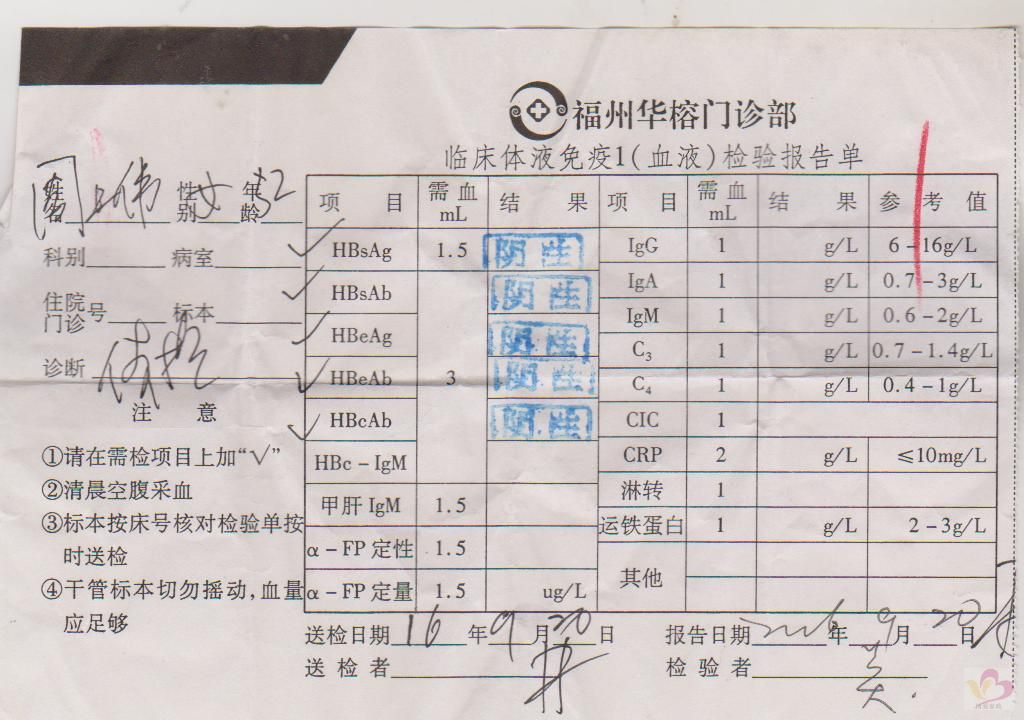 福州华榕门诊部
临床体液免疫1(血液)检验报告单
姓名 性别 女 年龄 52
科别 病室
住院门诊号 标本
诊断 体检
注 意
①请在需检项目上加“√”
②清晨空腹采血
③标本按床号核对检验单按
时送检
④干管标本切勿摇动,血量
应足够
项 目 需血 mL 结 果 项 目 需血 mL 结 果 参 考 值
√ HBsAg 1.5 阴性 IgG 1 g/L 6-16g/L
√ HBsAb 阴性 IgA 1 g/L 0.7-3g/L
√ HBeAg 阴性 IgM 1 g/L 0.6-2g/L
√ HBeAb 3 阴性 C₃ 1 g/L 0.7-1.4g/L
√ HBcAb 阴性 C₄ 1 g/L 0.4-1g/L
CIC 1
HBc-IgM CRP 2 g/L ≤10mg/L
甲肝 IgM 1.5 淋转 1
α-FP 定性 1.5 运铁蛋白 1 g/L 2-3g/L
α-FP 定量 1.5 ug/L 其他
送检日期 16 年 9 月 20 日 报告日期 2016 年 9 月 20 日
送 检 者 检 验 者